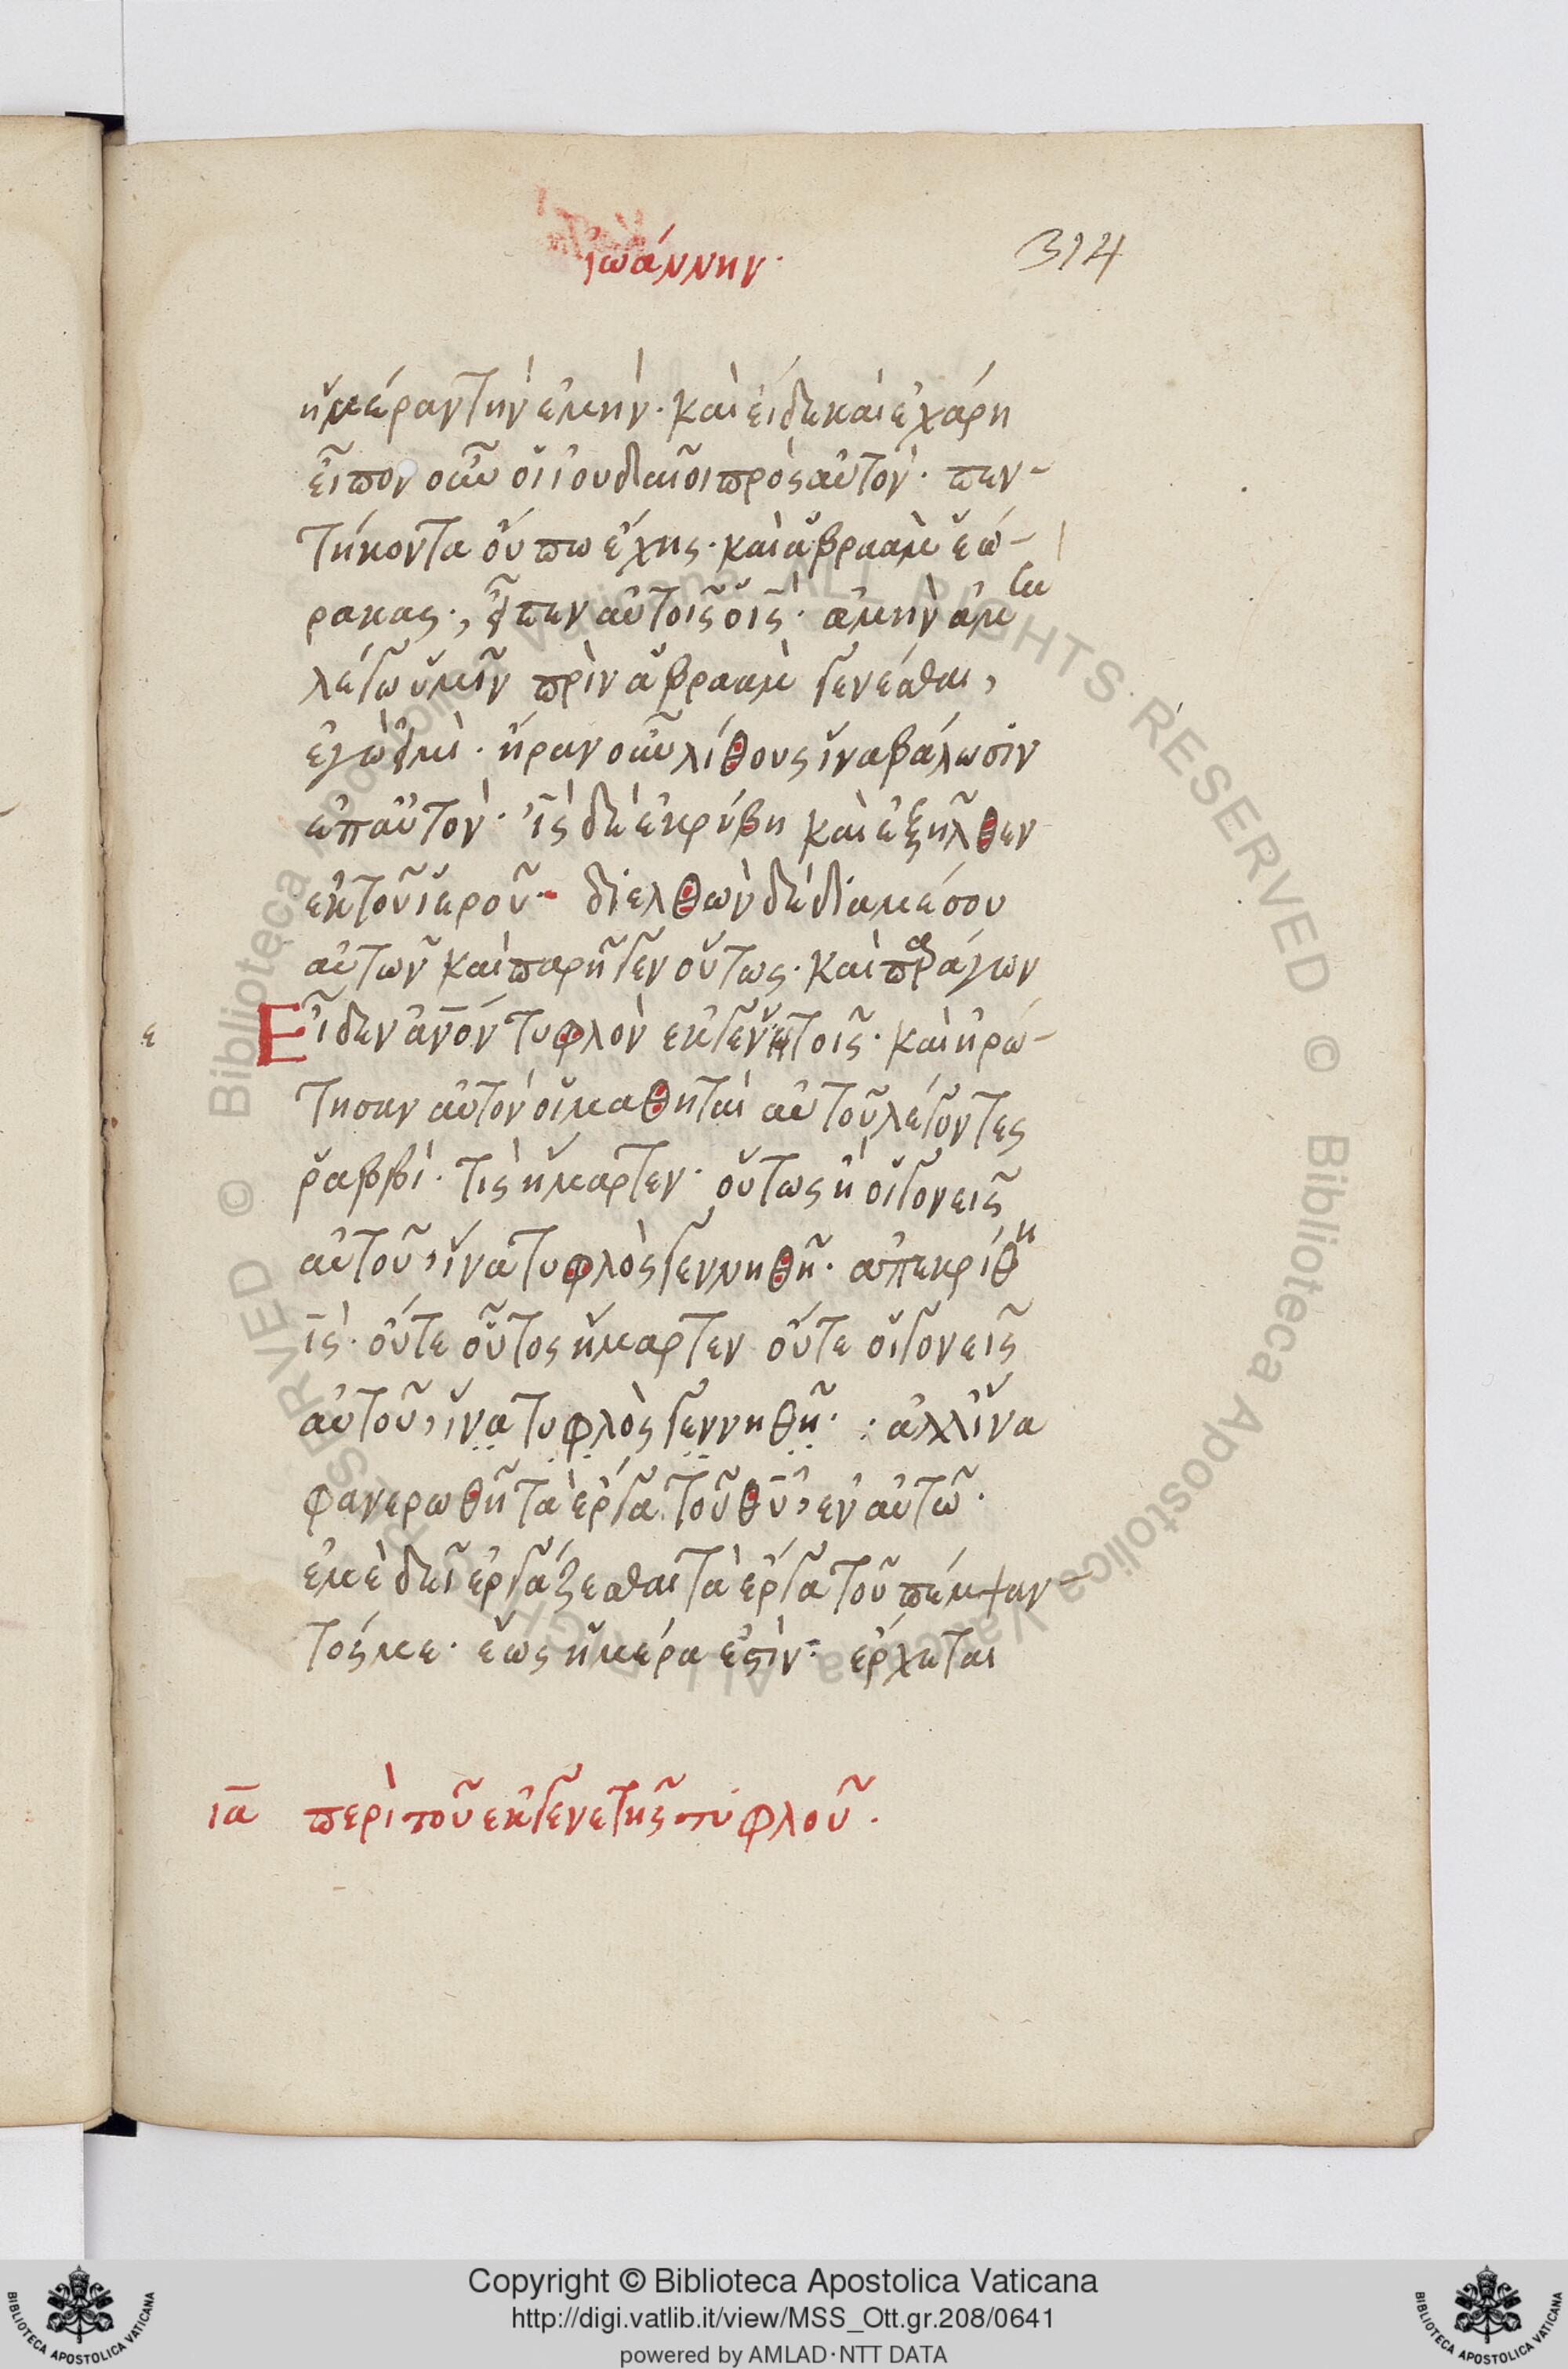 ἰωάννην·
314
ἡμέραν τὴν ἐμὴν· καὶ εἶδε καὶ ἐχάρη
εἶπον οὖν οἱ ἰουδαῖοι πρὸς αὐτὸν· πεν-
τήκοντα οὔπω ἔχης· καὶ ἀβραὰμ ἑώ-
ρακας·, εἶπεν αὐτοῖς ὁ ις· ἀμὴν ἀμ
λέγω ὑμῖν πρὶν ἀβραὰμ γενέσθαι,
ἐγὼ εἰμὶ· ἦραν οὖν λίθους ἵνα βάλωσιν
ἐπ αὐτὸν· ις δὲ ἐκρύβη καὶ ἐξῆλθεν
ἐκ τοῦ ἱεροῦ· διελθὼν δὲ δια μέσου
αὐτῶν καὶ παρῆγεν οὕτως· καὶ παράγων
ε Εἶδεν ανον τυφλὸν ἐκ γενητοῖς· καὶ ἠρώ-
τησαν αὐτὸν οἱ μαθηταὶ αὐτοῦ λέγοντες
ῥαββὶ· τὶς ἥμαρτεν· οὕτως ἢ οἱ γονεῖς
αὐτοῦ, ἵνα τυφλὸς γεννηθῆ· ἀπεκρίθη
ις· οὔτε οὗτος ἥμαρτεν οὔτε οἱ γονεῖς
αὐτοῦ, ἵνα τυφλὸς γεννηθῆ· : ἀλλ ἵνα
φανερωθῆ τὰ ἔργα τοῦ θυ, ἐν αὐτῶ·
ἐμὲ δεῖ ἐργάζεσθαι τὰ ἔργα τοῦ πέμψαν-
τός με· ἕως ἡμέρα ἐστὶν· ἔρχεται
ια περὶ τοῦ ἐκ γενετῆς τυφλοῦ·
Copyright © Biblioteca Apostolica Vaticana
http://digi.vatlib.it/view/MSS_Ott.gr.208/0641
powered by AMLAD·NTT DATA